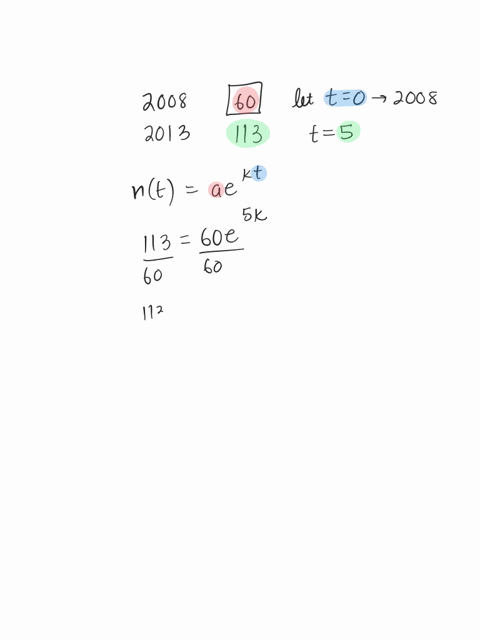 2008 60 let t=0 → 2008
2013 113 t=5
n(t) = ae^kt
113/60 = 60e^5k/60